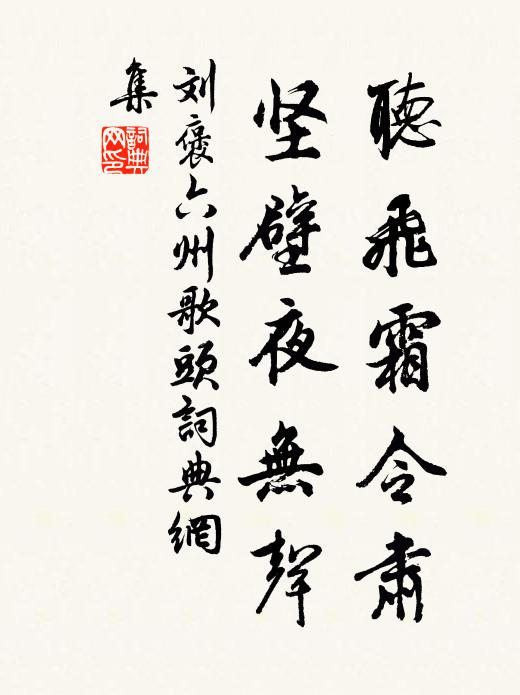 聽飛霜令肅
坚壁夜無聲
刘褒六州歌頭詞典網
集
詞典网印